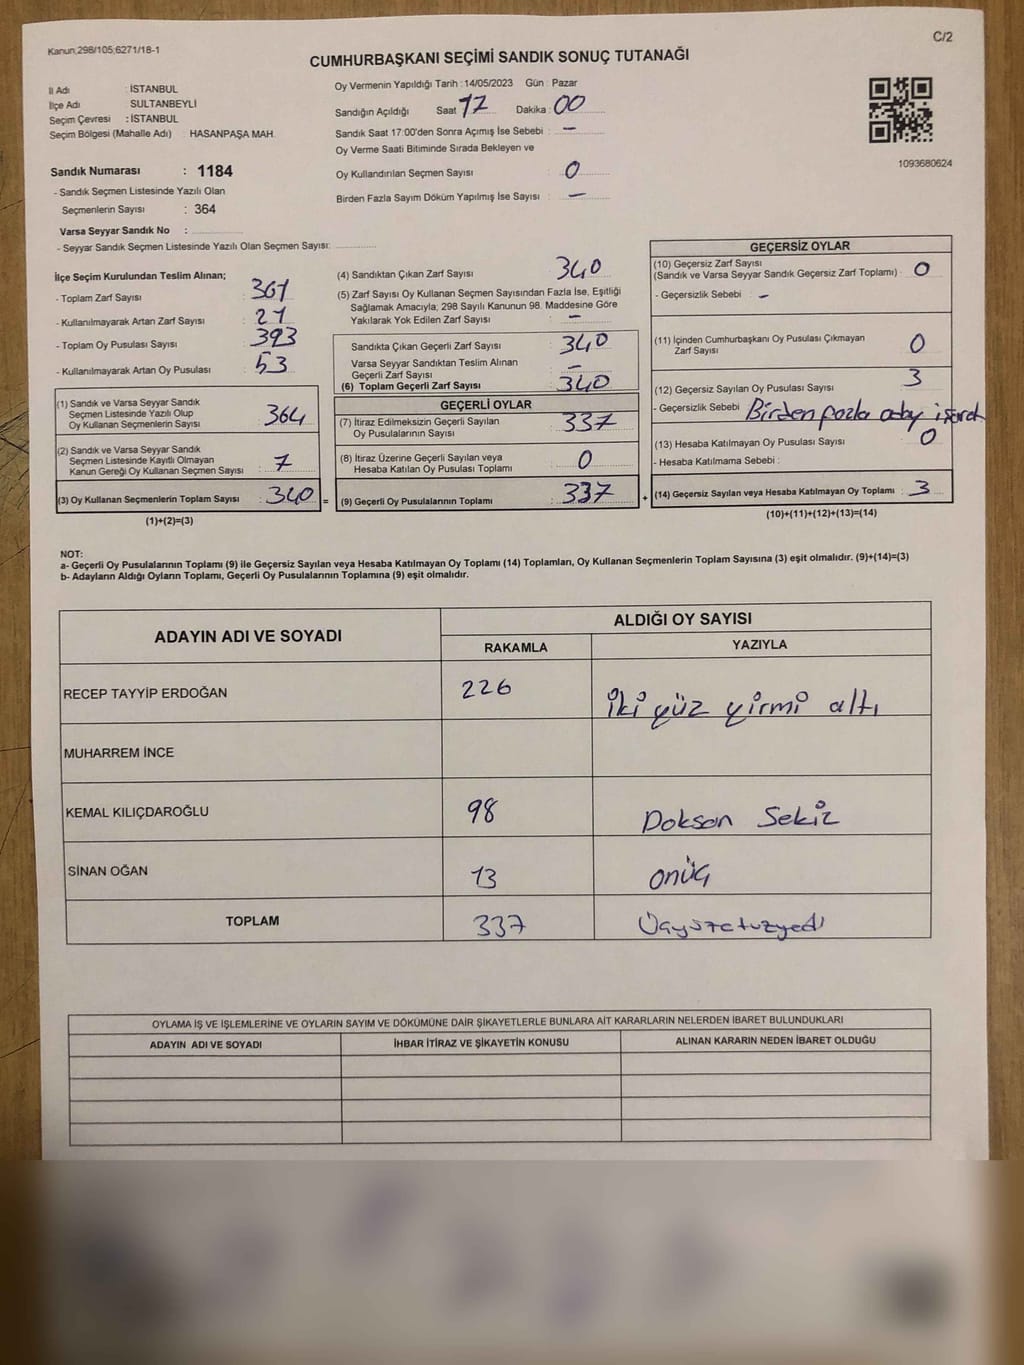 Kanun;298/105;6271/18-1
C/2
CUMHURBAŞKANI SEÇİMİ SANDIK SONUÇ TUTANAĞI
İl Adı : İSTANBUL
İlçe Adı SULTANBEYLİ
Seçim Çevresi : İSTANBUL
Seçim Bölgesi (Mahalle Adı) : HASANPAŞA MAH.
Oy Vermenin Yapıldığı Tarih : 14/05/2023 Gün : Pazar
Sandığın Açıldığı Saat 17 Dakika : 00
Sandık Saat 17:00'den Sonra Açımış İse Sebebi : –
Oy Verme Saati Bitiminde Sırada Bekleyen ve
Oy Kullandırılan Seçmen Sayısı : 0
Birden Fazla Sayım Döküm Yapılmış İse Sayısı : –
1093680624
Sandık Numarası : 1184
- Sandık Seçmen Listesinde Yazılı Olan
Seçmenlerin Sayısı : 364
Varsa Seyyar Sandık No :
- Seyyar Sandık Seçmen Listesinde Yazılı Olan Seçmen Sayısı:
İlçe Seçim Kurulundan Teslim Alınan;
- Toplam Zarf Sayısı : 361
- Kullanılmayarak Artan Zarf Sayısı : 21
- Toplam Oy Pusulası Sayısı : 393
- Kullanılmayarak Artan Oy Pusulası : 53
(1) Sandık ve Varsa Seyyar Sandık
Seçmen Listesinde Yazılı Olup
Oy Kullanan Seçmenlerin Sayısı : 364
(2) Sandık ve Varsa Seyyar Sandık
Seçmen Listesinde Kayıtlı Olmayan
Kanun Gereği Oy Kullanan Seçmen Sayısı : 7
(3) Oy Kullanan Seçmenlerin Toplam Sayısı : 340 =
(1)+(2)=(3)
(4) Sandıktan Çıkan Zarf Sayısı : 340
(5) Zarf Sayısı Oy Kullanan Seçmen Sayısından Fazla İse, Eşitliği
Sağlamak Amacıyla; 298 Sayılı Kanunun 98. Maddesine Göre
Yakılarak Yok Edilen Zarf Sayısı : –
Sandıkta Çıkan Geçerli Zarf Sayısı : 340
Varsa Seyyar Sandıktan Teslim Alınan
Geçerli Zarf Sayısı : –
(6) Toplam Geçerli Zarf Sayısı : 340
GEÇERLİ OYLAR
(7) İtiraz Edilmeksizin Geçerli Sayılan
Oy Pusulalarının Sayısı : 337
(8) İtiraz Üzerine Geçerli Sayılan veya
Hesaba Katılan Oy Pusulası Toplamı : 0
(9) Geçerli Oy Pusulalarının Toplamı : 337 +
GEÇERSİZ OYLAR
(10) Geçersiz Zarf Sayısı
(Sandık ve Varsa Seyyar Sandık Geçersiz Zarf Toplamı) : 0
- Geçersizlik Sebebi : –
(11) İçinden Cumhurbaşkanı Oy Pusulası Çıkmayan
Zarf Sayısı : 0
(12) Geçersiz Sayılan Oy Pusulası Sayısı : 3
- Geçersizlik Sebebi : Birden fazla aday işaret
(13) Hesaba Katılmayan Oy Pusulası Sayısı : 0
- Hesaba Katılmama Sebebi :
(14) Geçersiz Sayılan veya Hesaba Katılmayan Oy Toplamı : 3
(10)+(11)+(12)+(13)=(14)
NOT:
a- Geçerli Oy Pusulalarının Toplamı (9) ile Geçersiz Sayılan veya Hesaba Katılmayan Oy Toplamı (14) Toplamları, Oy Kullanan Seçmenlerin Toplam Sayısına (3) eşit olmalıdır. (9)+(14)=(3)
b- Adayların Aldığı Oyların Toplamı, Geçerli Oy Pusulalarının Toplamına (9) eşit olmalıdır.
ADAYIN ADI VE SOYADI
ALDIĞI OY SAYISI
RAKAMLA YAZIYLA
RECEP TAYYİP ERDOĞAN 226 iki yüz yirmi altı
MUHARREM İNCE
KEMAL KILIÇDAROĞLU 98 Doksan Sekiz
SİNAN OĞAN 13 onüç
TOPLAM 337 Üçyüzotuzyedi
OYLAMA İŞ VE İŞLEMLERİNE VE OYLARIN SAYIM VE DÖKÜMÜNE DAİR ŞİKAYETLERLE BUNLARA AİT KARARLARIN NELERDEN İBARET BULUNDUKLARI
ADAYIN ADI VE SOYADI İHBAR İTİRAZ VE ŞİKAYETİN KONUSU ALINAN KARARIN NEDEN İBARET OLDUĞU